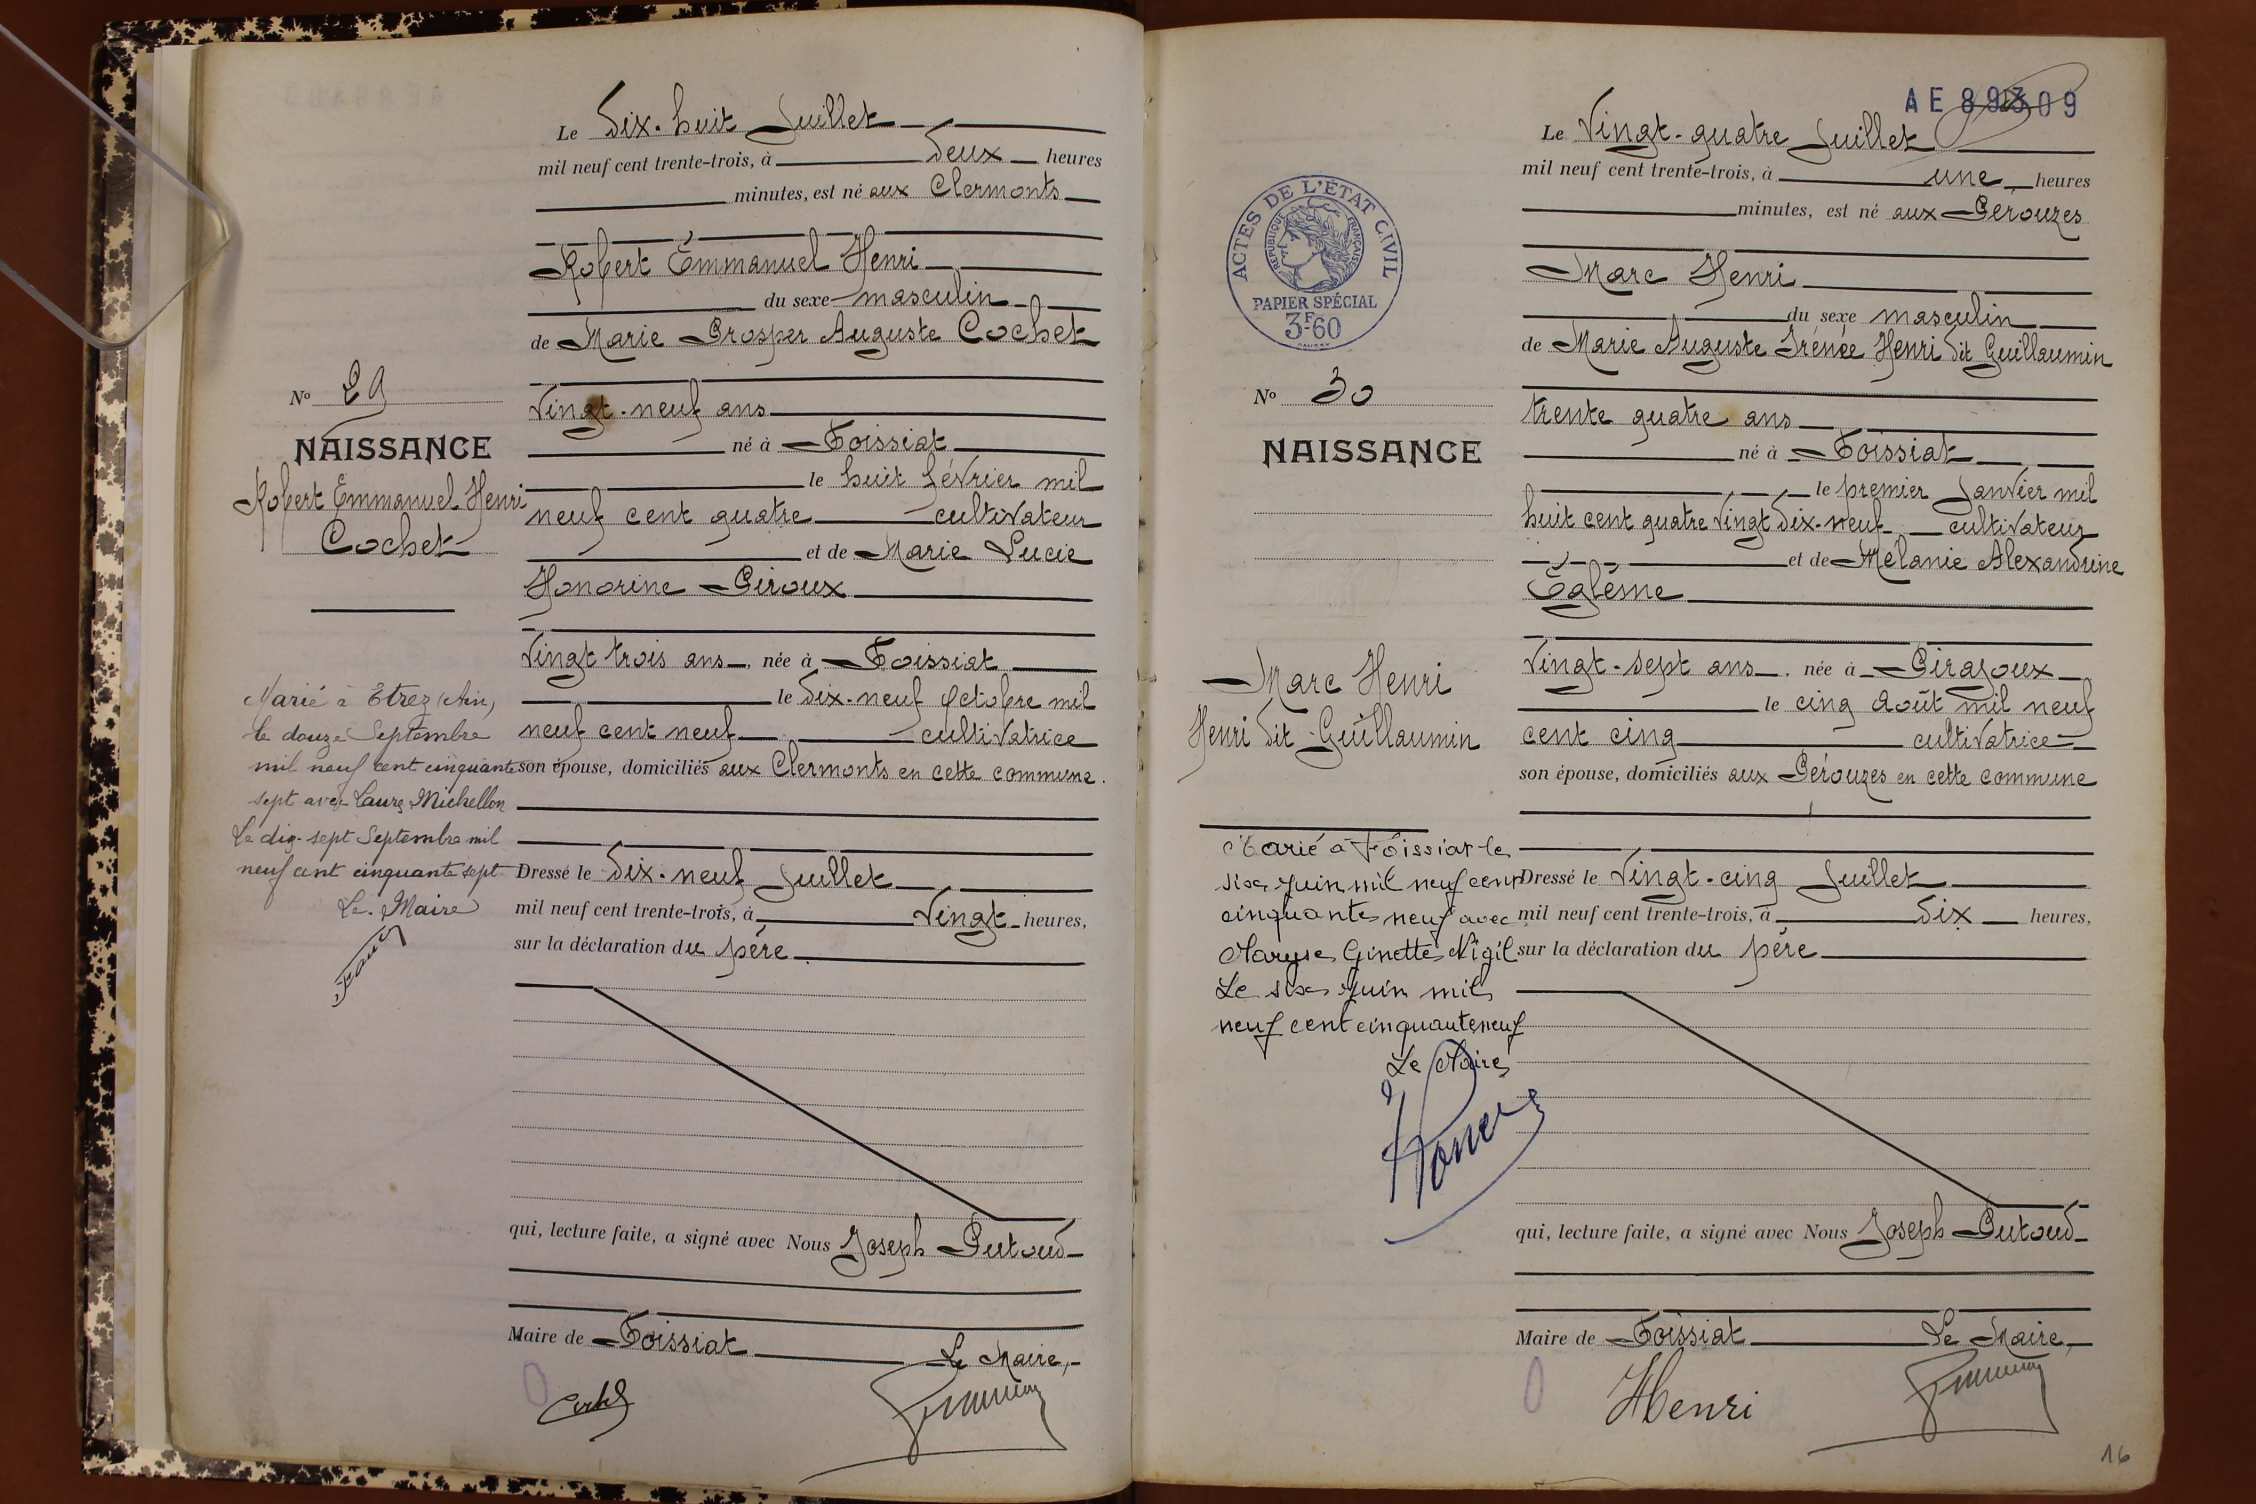 Le Dix-huit Juillet
mil neuf cent trente-trois, à Deux heures
minutes, est né aux Clermonts
Robert Emmanuel Henri
du sexe masculin
de Marie Prosper Auguste Cochet
Vingt-neuf ans
né à Foissiat
le huit février mil
neuf cent quatre cultivateur
et de Marie Lucie
Honorine Piroux
Vingt trois ans, née à Foissiat
le Dix-neuf Octobre mil
neuf cent neuf cultivatrice
son épouse, domiciliés aux Clermonts en cette commune.
Dressé le Dix-neuf Juillet
mil neuf cent trente-trois, à Vingt heures,
sur la déclaration du père
qui, lecture faite, a signé avec Nous Joseph Putoud
Maire de Foissiat
Le Maire,
No 29
NAISSANCE
Robert Emmanuel Henri
Cochet
Marié à Etrez (Ain)
le douze Septembre
mil neuf cent cinquante
sept avec Laure Michellon
Le dix-sept Septembre mil
neuf cent cinquante sept
Le Maire
AE 89309
Le Vingt-quatre Juillet
mil neuf cent trente-trois, à une heures
minutes, est né aux Pérouzes
Marc Henri
du sexe masculin
de Marie Auguste Irénée Henri dit Guillaumin
trente quatre ans
né à Foissiat
le premier Janvier mil
huit cent quatre Vingt Dix-neuf cultivateur
et de Mélanie Alexandrine
Eglème
Vingt-sept ans, née à Pirajoux
le cinq Août mil neuf
cent cinq cultivatrice
son épouse, domiciliés aux Pérouzes en cette commune
Dressé le Vingt-cinq Juillet
mil neuf cent trente-trois, à Dix heures,
sur la déclaration du père
qui, lecture faite, a signé avec Nous Joseph Putoud
Maire de Foissiat
Le Maire,
Henri
ACTES DE L'ÉTAT CIVIL
RÉPUBLIQUE FRANÇAISE
PAPIER SPÉCIAL
3F60
No 30
NAISSANCE
Marc Henri
Henri dit Guillaumin
Marié à Foissiat le
six juin mil neuf cent
cinquante neuf avec
Maryse Ginette Nigil
Le six juin mil
neuf cent cinquante neuf
Le Maire
16